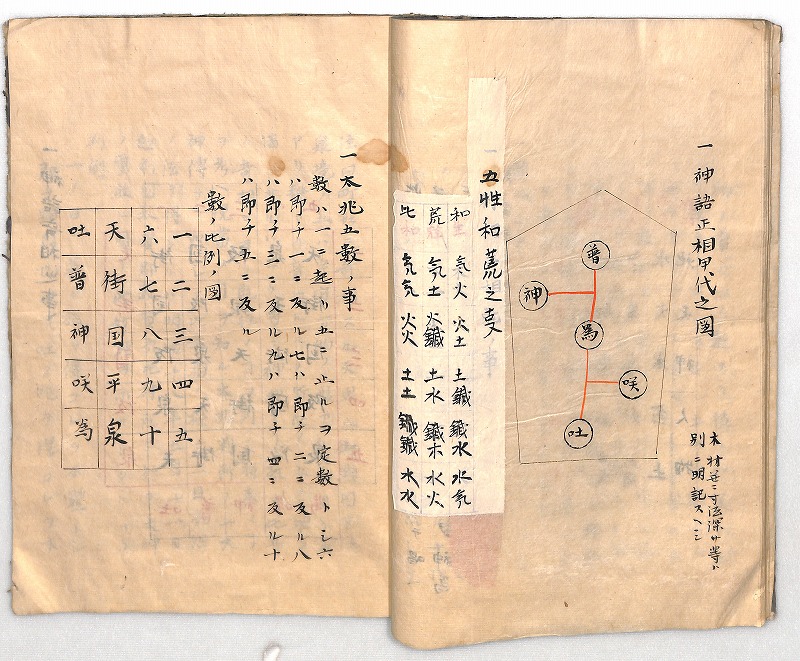 一 神語正相甲代之圖
普
神
為
咲
吐
木材並ニ寸法深サ等ハ
別ニ明記スヘシ
五性和荒之支
和 氣火 火土 土鍼 鍼水 水氣
荒 氣土 火鍼 土水 鍼木 水火
比 氣氣 火火 土土 鍼鍼 水水
一太兆五數ノ事
數ハ一ニ起リ五ニ止ルヲ定數トシ六
ハ即チ一ニ反ル七ハ即チ二ニ反ル八
ハ即チ三ニ反ル九ハ即チ四ニ反ル十
ハ即チ五ニ反ル
數ノ比例ノ圖
一 二 三 四 五
六 七 八 九 十
天 街 国 平 泉
吐 普 神 咲 為